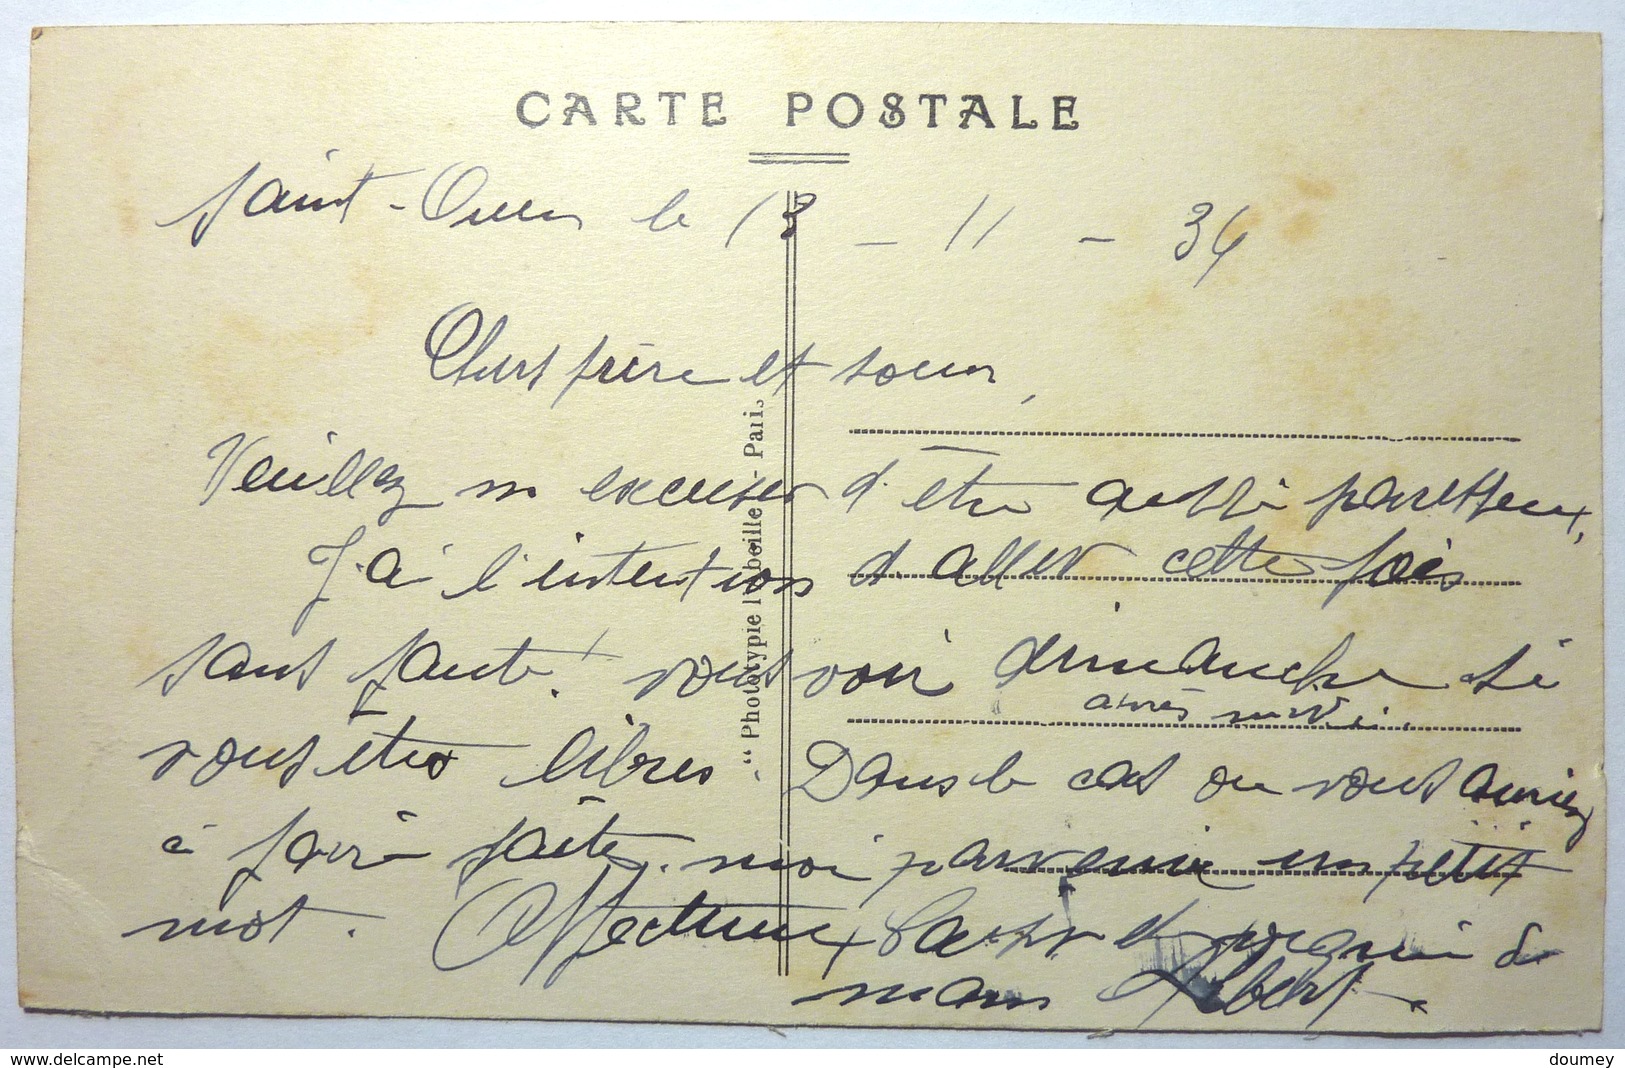 CARTE POSTALE
Saint-Ouen le 13 - 11 - 34
Chers frère et soeur,
Veuillez m excuser d'être aussi paresseux,
J'ai l'intention d'aller cette fois
sans faute! vous voir dimanche si
après midi.
vous êtes libres. Dans le cas ou vous auriez
à faire faites. moi parvenir un petit
mot. Affectueux baiser et poignée de
mains Albert.
"Phototypie l'Abeille" - Paris
www.delcampe.net
doumey